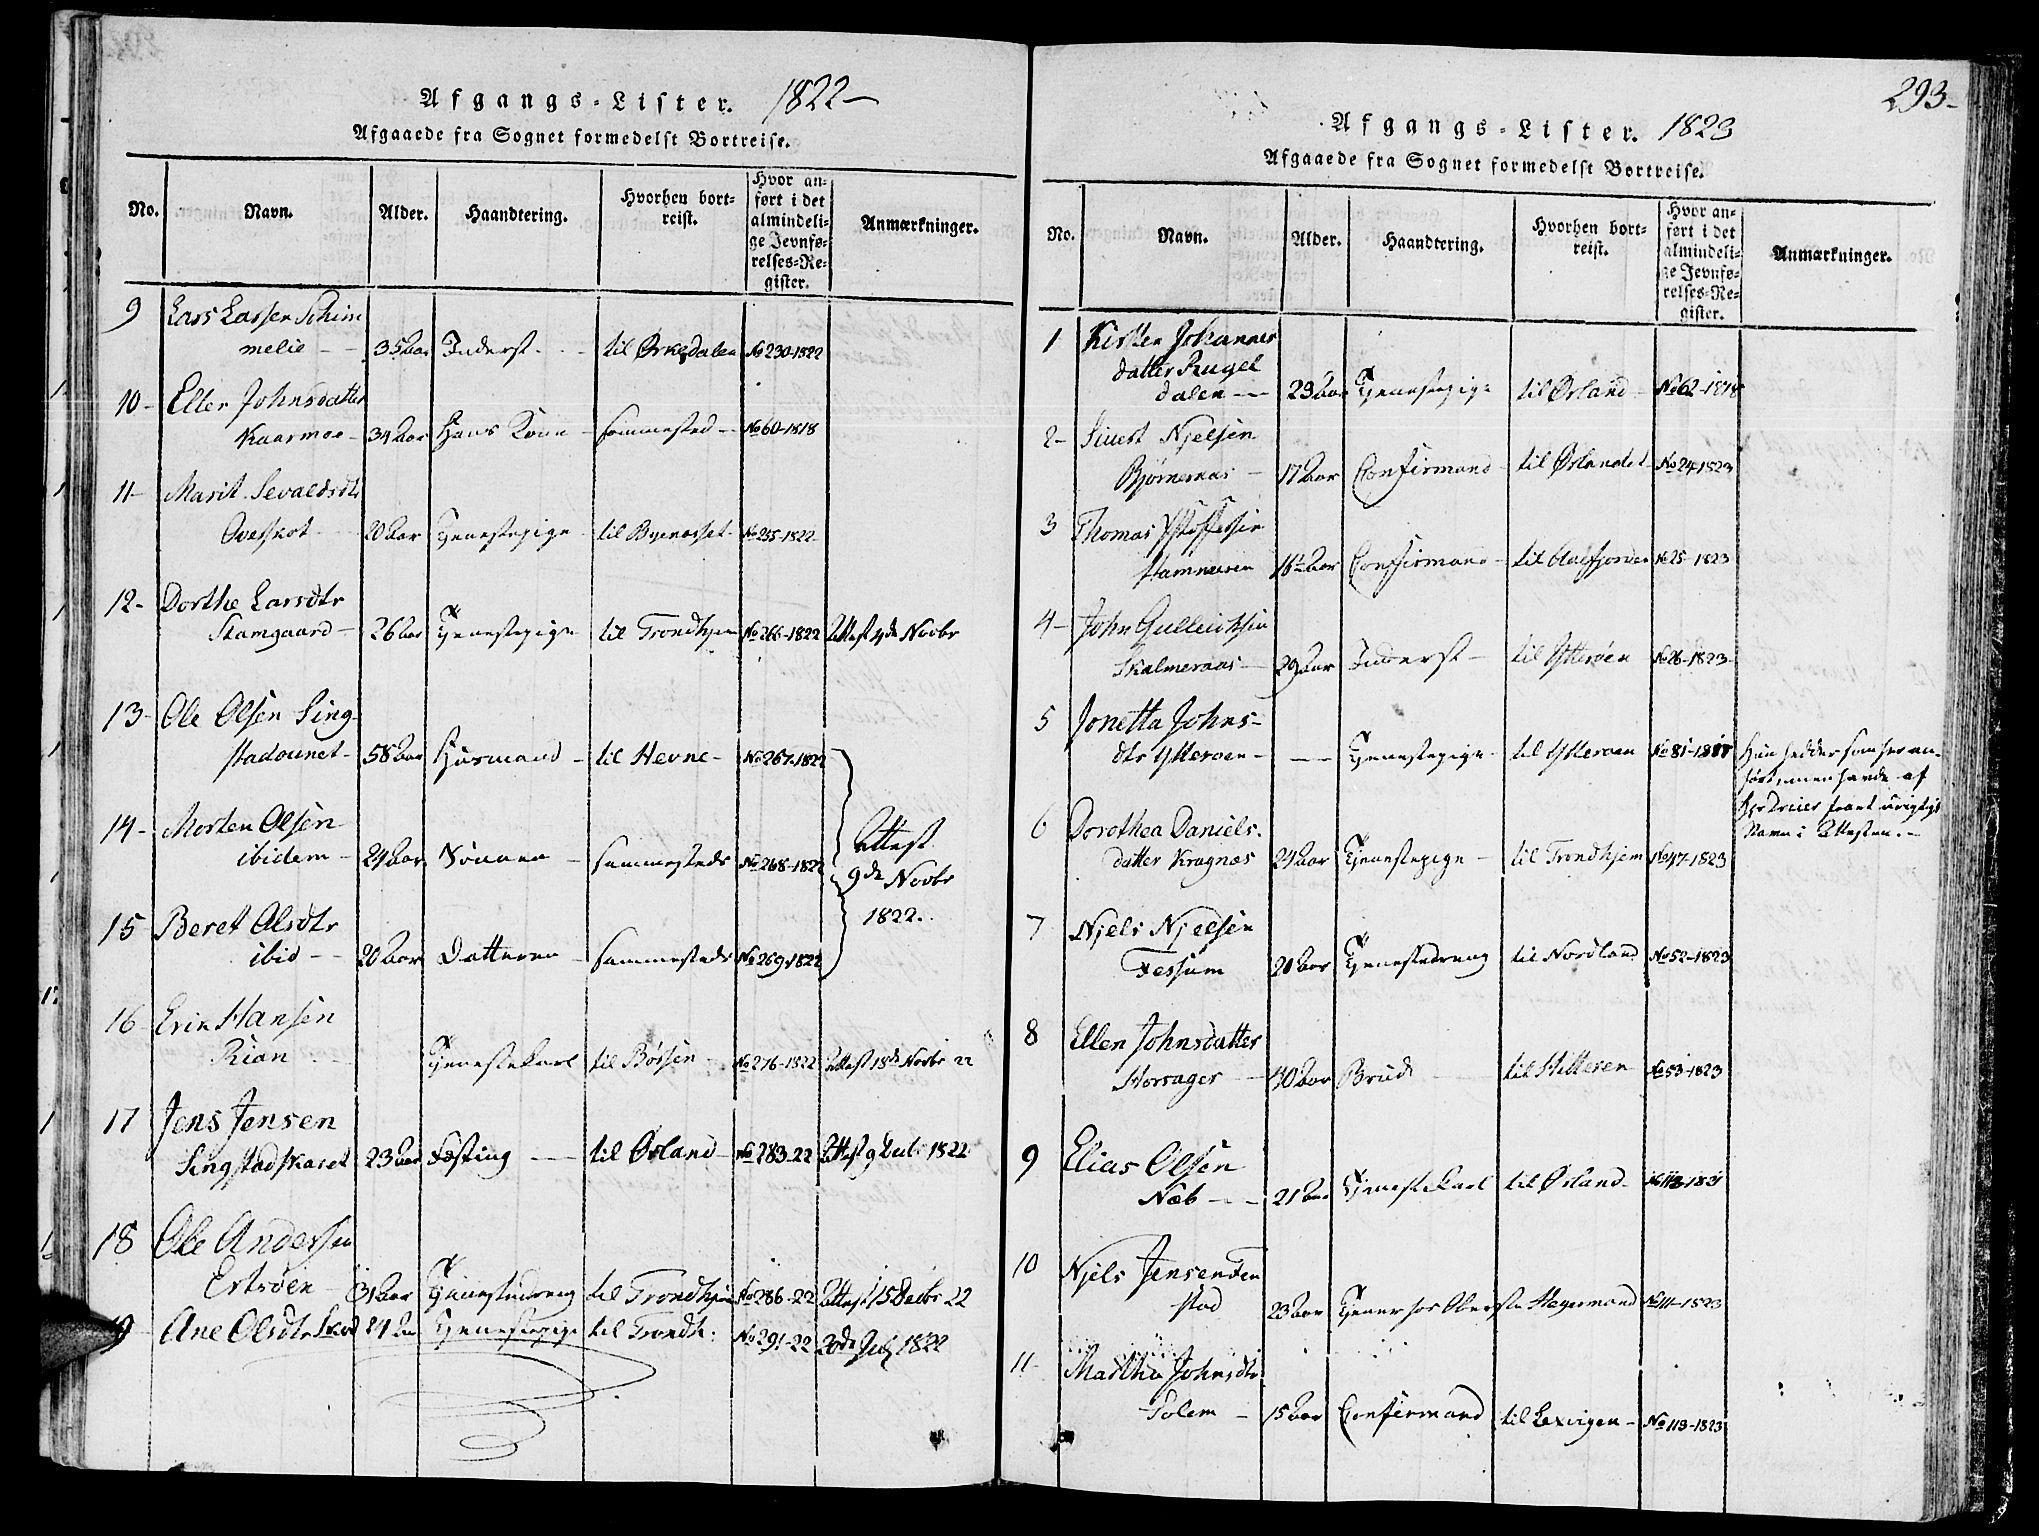 Afgangs-Lister. 1822-
Afgaaede fra Sognet formedelst Bortreise.
No. Navn. Alder. Haandtering. Hvorhen bortreist. Hvor anført i det almindelige Jevnførelses-Register. Anmærkninger.
9 Lars Larsen Schim
melie - 35 Aar Inderst - til Ørkedalen No 230-1822
10- Ellen Johnsdatter
Kaarmoe - 34 Aar Hans Kone - sammested - No 60-1818
11- Marit Sevaldsdtr
20 Aar Tjenestepige - til Byenesset No 235-1822
12- Dorthe Larsdtr
Skamgaard - 26 Aar Tjenestepige til Trondhjem No 266-1822 Attest 4de Novbr
13- Ole Olsen Sing-
stadounet - 58 Aar Huusmand - til Hevne - No 267-1822
14- Morten Olsen
ibidem - 24 Aar Sønnen - sammesteds No 268-1822 Attest
9de Novbr
1822.
15 Beret Olsdtr
ibid - - 20 Aar Datteren - sammesteds No 269-1822
16- Erik Hansen
Rian Tjenestekarl til Børsen - No 276-1822 Attest 18de Novbr 22
17 Jens Jensen
Singstadskaret 23 Aar Fosting - til Ørland - No 283-22 Attest 9 Decbr 1822
18 Ole Andersen
Ertsøen - 31 Aar Tjenestedreng til Trondhjem No 286-22 Attest 15 Decbr 22
19- Ane Olsdtr Skod 24 Aar Tjenestepige til Trondh: No 291-22 20de July 1822
293-
Afgangs-Lister. 1823
Afgaaede fra Sognet formedelst Bortreise.
No. Navn. Alder. Haandtering. Hvorhen bortreist. Hvor anført i det almindelige Jevnførelses-Register. Anmærkninger.
1 Kirsten Johannes
datter Rugel
dalen - 23 Aar Tjenestepige til Ørland - No 62-1818
2- Siuert Njelsen
Bjørnernas - 17 Aar Confirmand - til Ørlandet No 24-1823
3 Thomas
Hamneren Confirmand - No 25-1823
4- John Gulleichsen
Skalmeraas - 29 Aar Inderst - til Ytterøen No 26-1823-
5 Jonetta Johns-
dtr Ytterøen - - Tjenestepige - til Ytterøen No 81- Hun hedder som her an-
ført, men havde af
Navn i Attesten. -
6 Dorothea Daniels-
datter Kragnæs 24 Aar Tjenestepige - til Trondhjem No 47-1823
7 Njels Njelsen
Fessum 20 Aar Tjenestedreng til Nordland No 52-1823
8 Ellen Johnsdatter
Morsager - 40 Aar Brud - til Hitteren No 53-1823
9 Elias Olsen
Næb - - 21 Aar Tjenestekarl til Ørland -
10 Njels Jensen Fen
stad 23 Aar Tjener hos Oberste Hegermand No 111-1823
11- Martha Johnsdtr
Solem - 15 Aar Confirmand til Lexvigen - No 113-1823